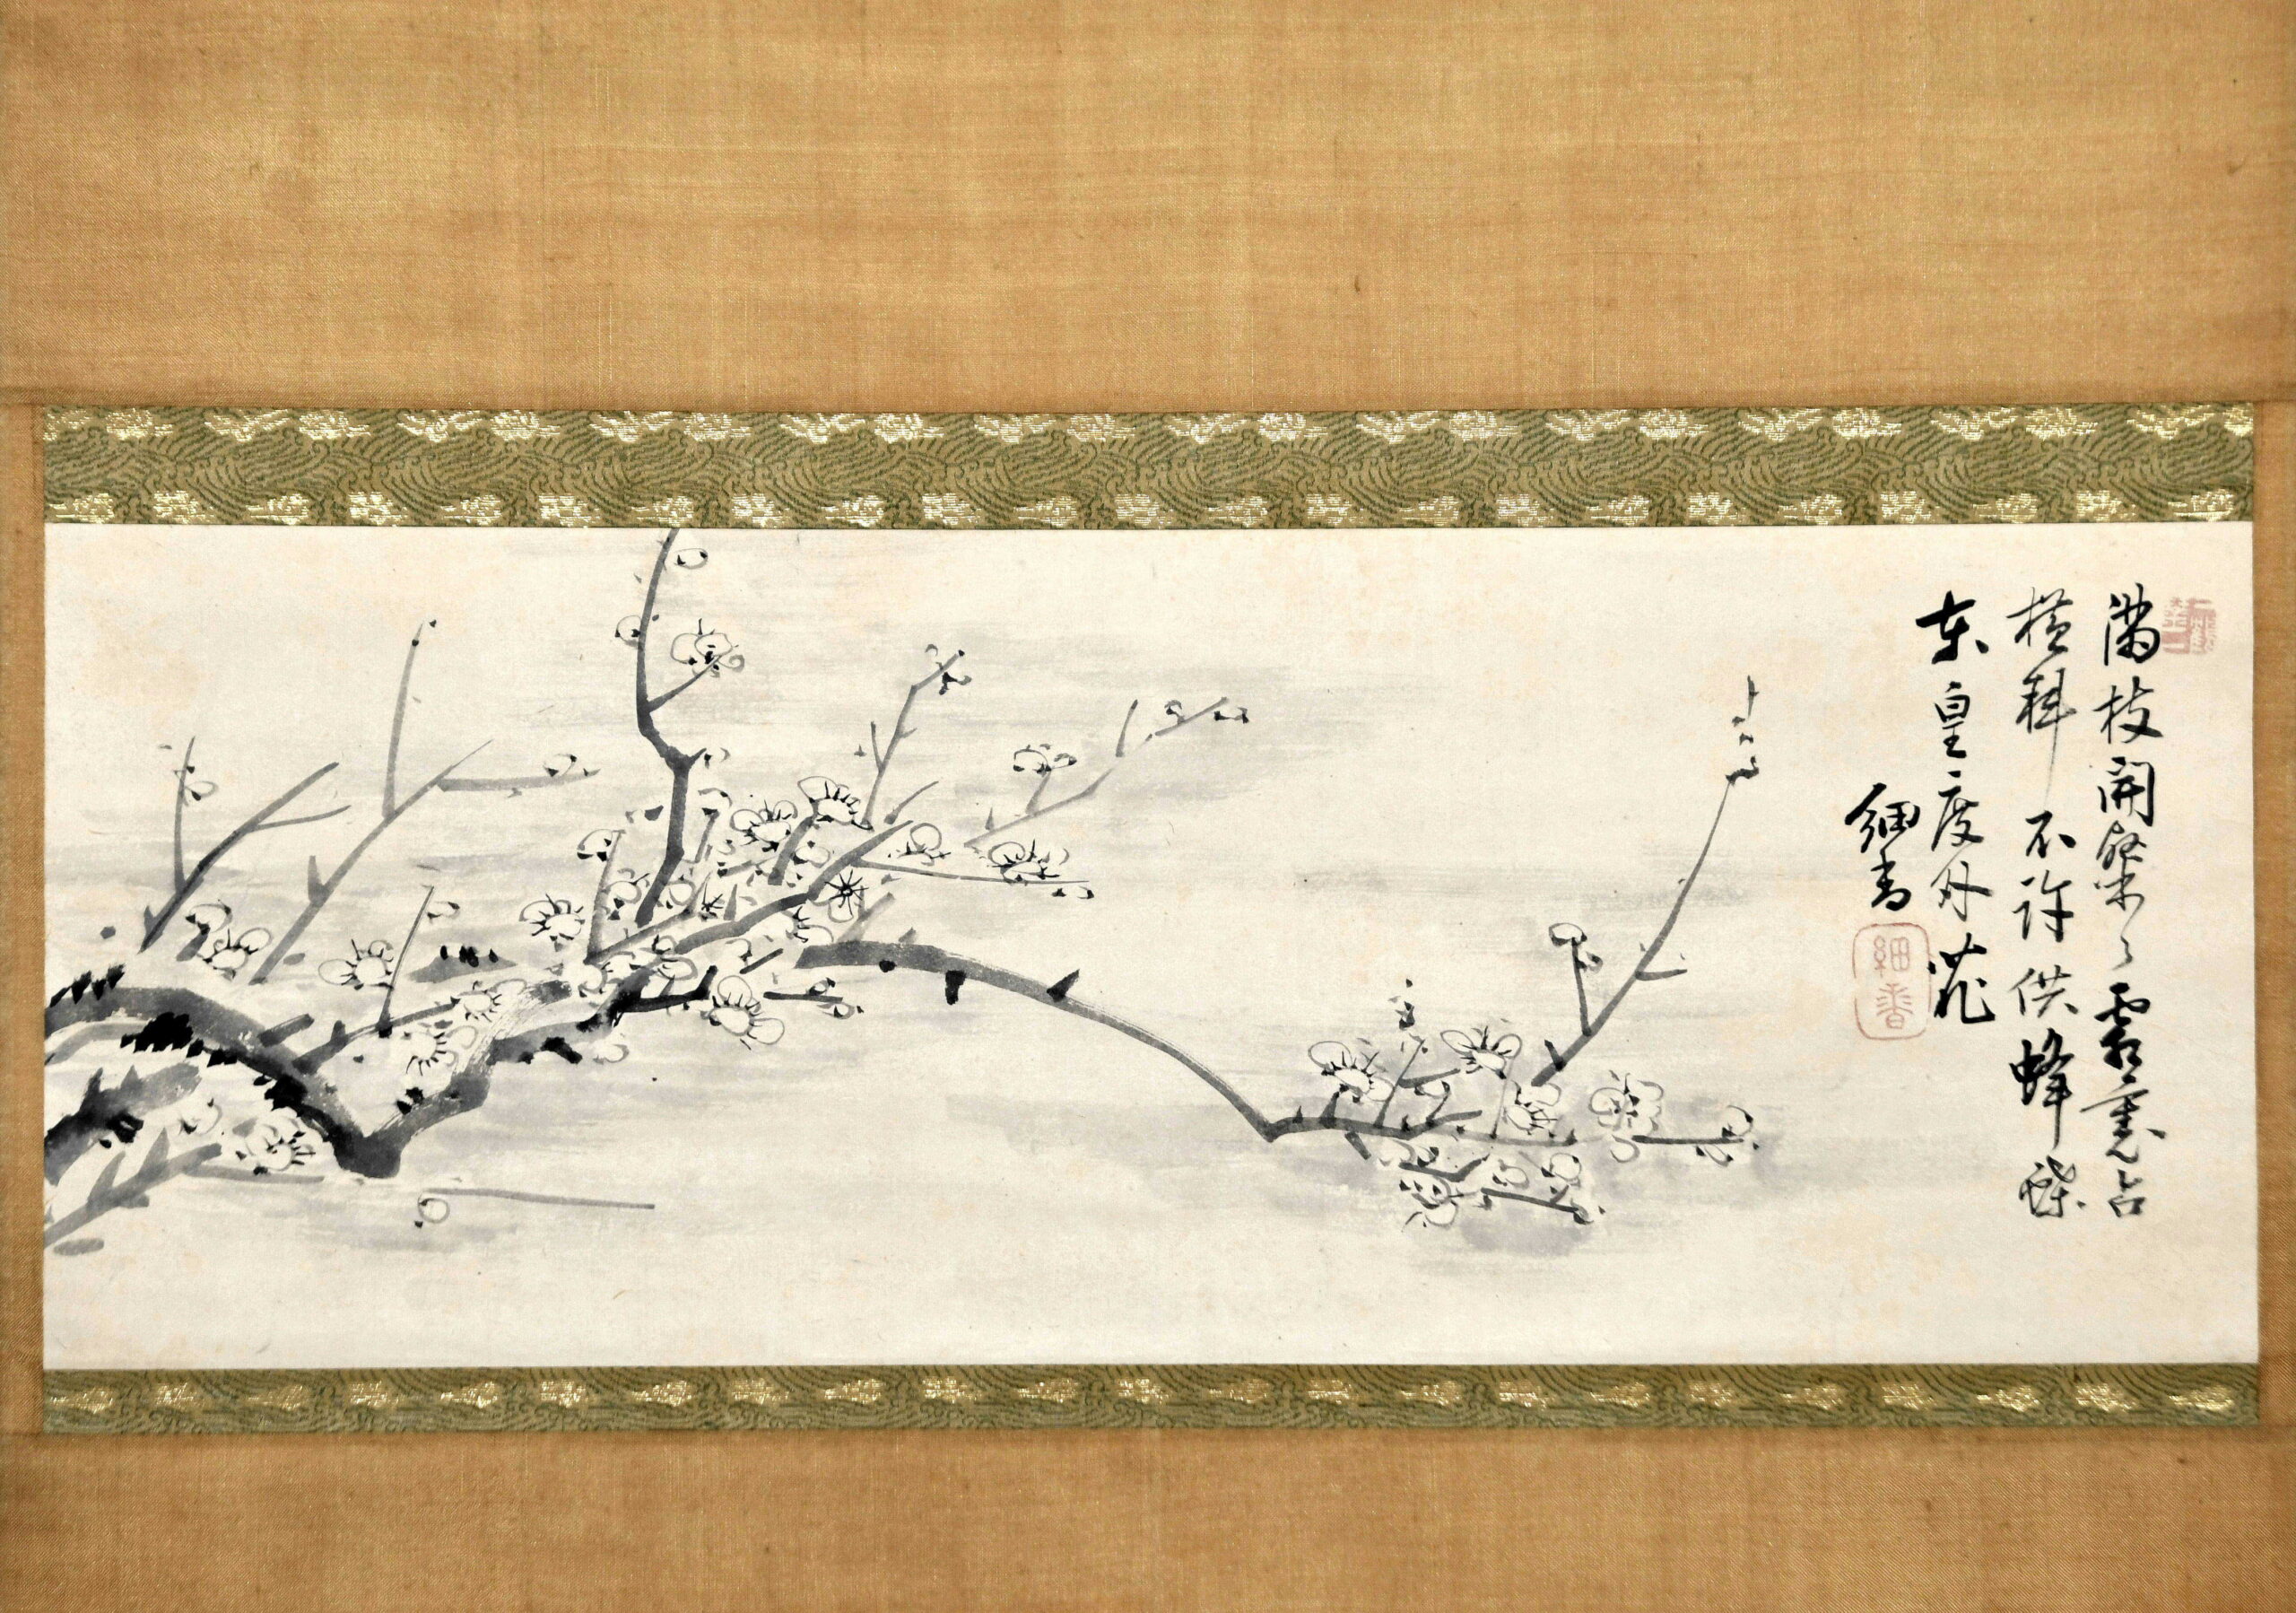 滿枝開粲々霜裏占
横斜不許供蜂蝶
東皇度外花
細香
細香